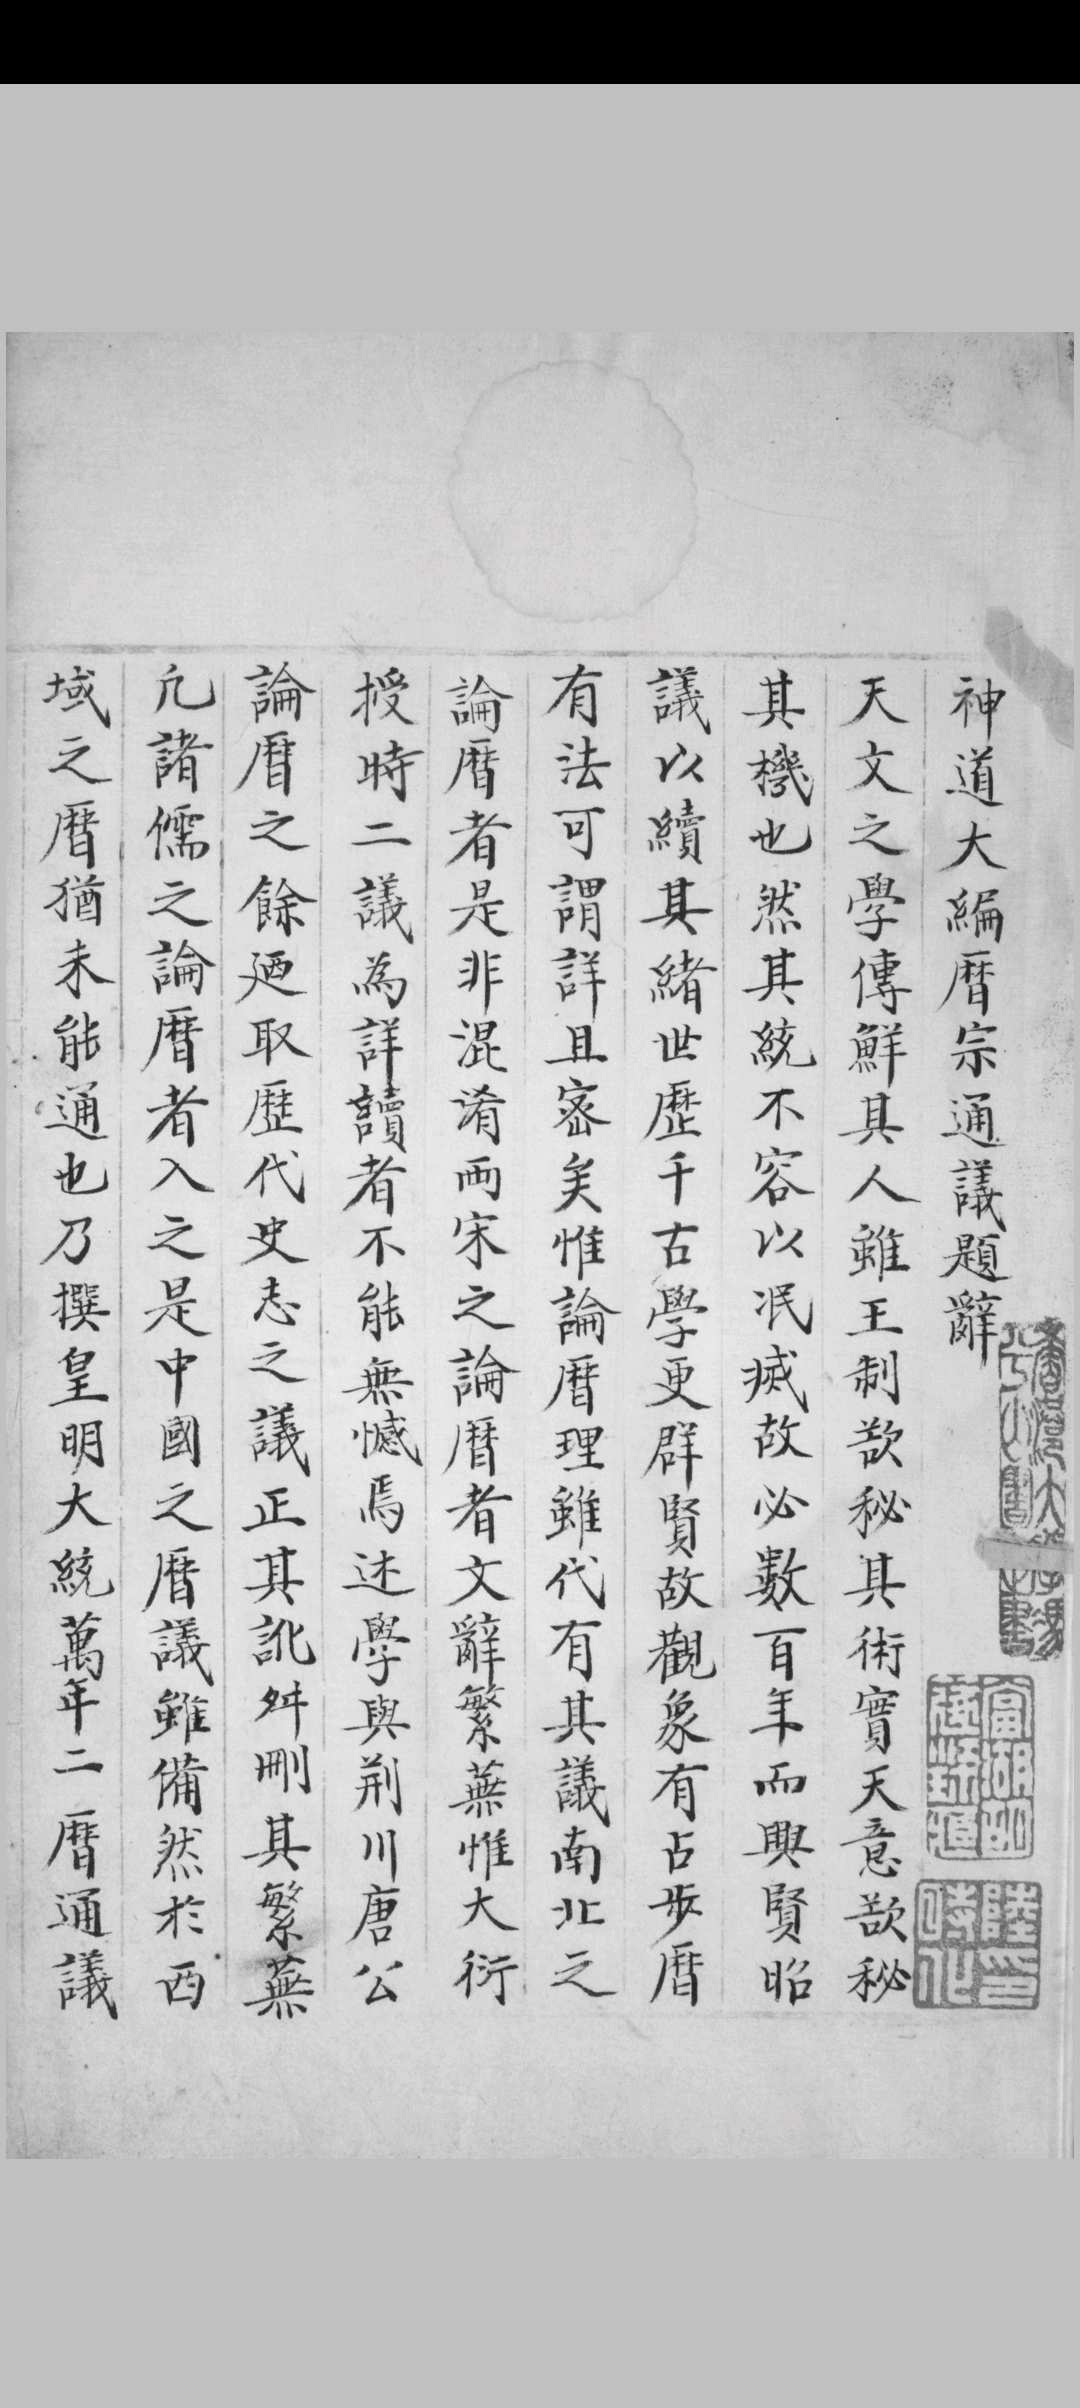 神道大編曆宗通議題辭
天文之學傳鮮其人雖王制欲秘其術實天意欲秘
其機也然其統不容以泯滅故必數百年而興賢昭
議以續其緒世歷千古學更群賢故觀象有占步曆
有法可謂詳且密矣惟論曆理雖代有其議南北之
論曆者是非混淆兩宋之論曆者文辭繁蕪惟大衍
授時二議為詳讀者不能無憾焉述學與荊川唐公
論曆之餘廼取歷代史志之議正其訛舛刪其繁蕪
凢諸儒之論曆者入之是中國之曆議雖備然於西
域之曆猶未能通也乃撰皇明大統萬年二曆通議